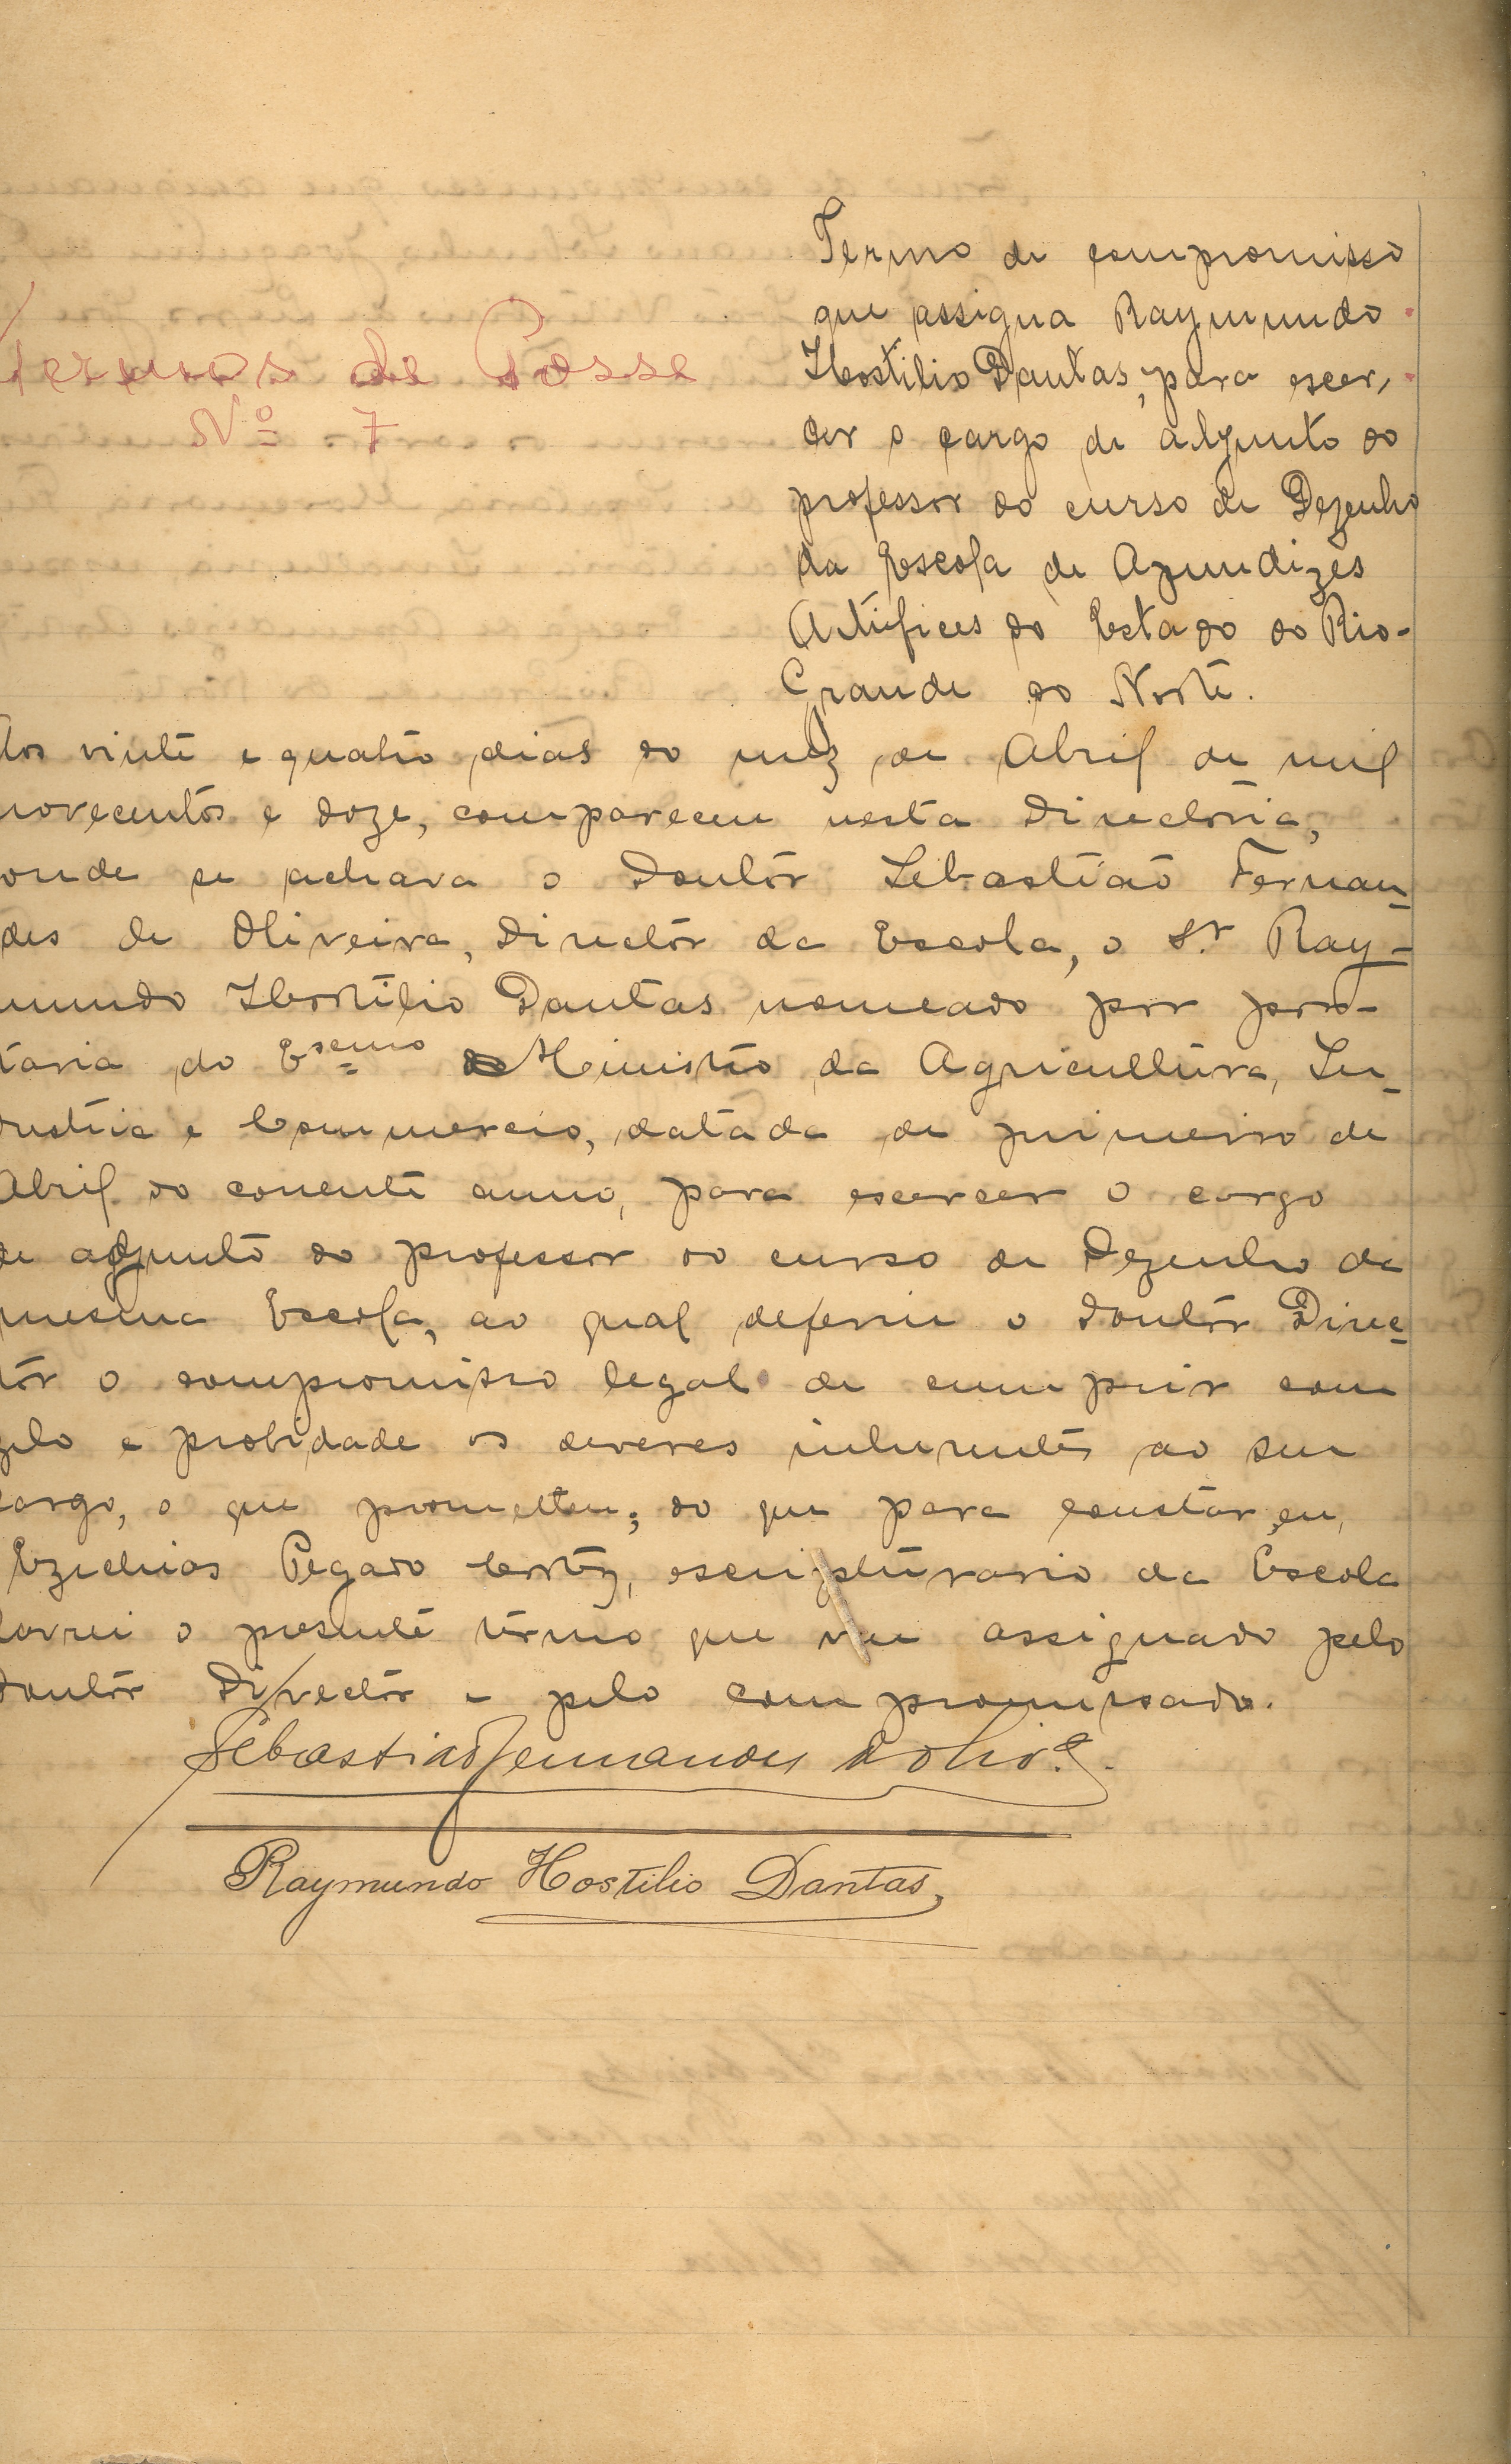 Termos de Posse
Nº 7
Termo de compromisso
que assigna Raymundo
Hostilio Dantas, para exer,
cer o cargo de adjunto do
professor do curso de Dezenho
da Escola de Aprendizes
Artifices do Estado do Rio-
Grande do Norte.
Aos vinte e quatro dias do mez de Abril de mil
novecentos e doze, compareceu nesta Directoria,
onde se achava o Doutor Sebastião Fernan-
des de Oliveira, Director da Escola, o Sr. Ray-
mundo Hostilio Dantas nomeado por por-
taria do Exmo Ministro da Agricultura, In-
dustria e Commercio, datada de primeiro de
Abril do corrente anno, para exercer o cargo
de adjunto do professor do curso de Dezenho da
mesma Escola, ao qual deferiu o Doutor Direc-
tor o compromisso legal de cumprir com
zelo e probidade os deveres inherentes ao seu
cargo, o que prometteu; do que para constar, eu,
Ezechias Pegado Cortez, escripturario da Escola
lavrei o presente termo que vae assignado pelo
Doutor Director e pelo compromissado.
Sebastião Fernandes d'Olivª.
Raymundo Hostilio Dantas,